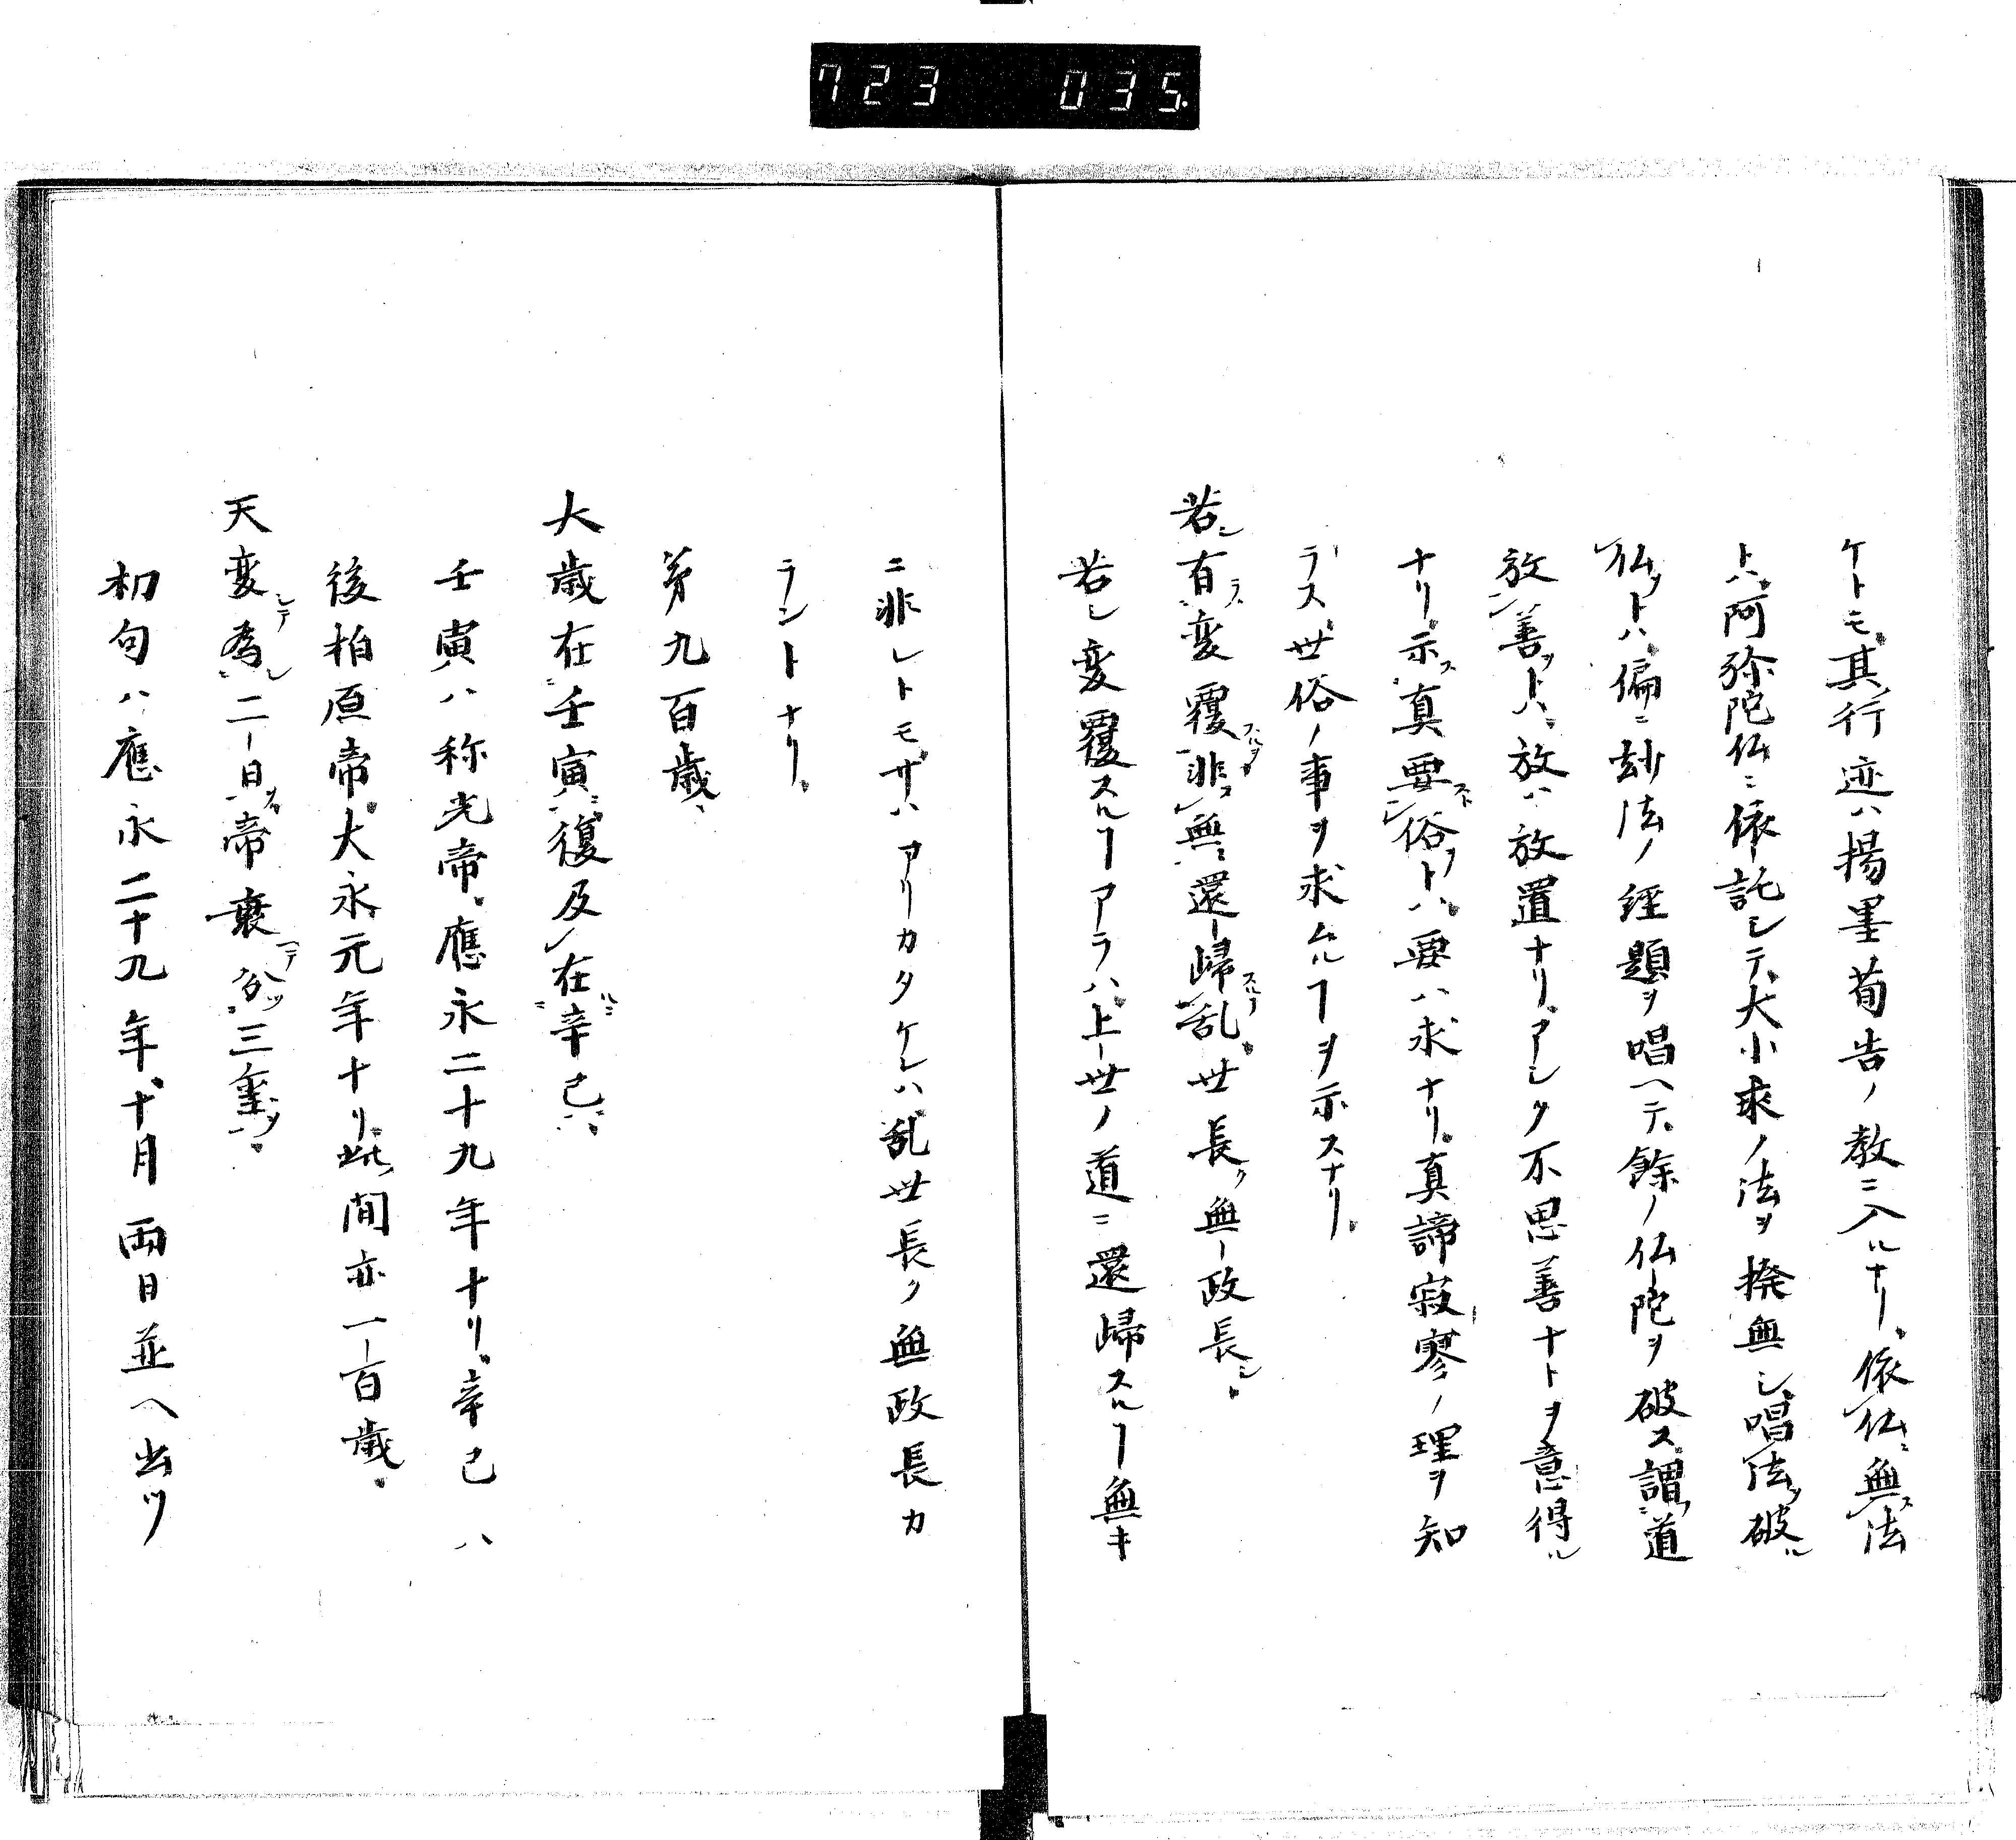 723 035.
ケトモ其行迹ハ揚墨荀告ノ教ニ入ルナリ依仏ニ無ス法
トハ阿弥陀仏ニ依託シテ大小乗ノ法ヲ撥無シ唱法ヲ破ル
仏ヲトハ偏ニ玅法ノ経題ヲ唱ヘテ餘ノ仏陀ヲ破ス謂道
放善ヲトハ放ハ放置ナリアシク不思善ナトヲ意得ル
ナリ示ス真要スト俗ヲトハ要ハ求ナリ真諦寂寥ノ理ヲ知
ラス世俗ノ事ヲ求ムルヿヲ示スナリ
若シ有ラハ変覆スルヿ非ス無ニ還帰スルヿ乱世長ク無政長シ
若シ変覆スルヿアラハ上世ノ道ニ還帰スルヿ無キ
ニ非レトモサハアリカタケレハ乱世長ク無政長カ
ラントナリ
第九百歳
大歳在壬寅ニ復及在ルニ辛巳ニ
壬寅ハ称光帝應永二十九年ナリ辛巳ハ
後柏原帝大永元年ナリ此間亦一百歳
天変シテ為レ二日ト帝衰ヘテ分ツ三壐ヲ
初句ハ應永二十九年十月両日並ヘ出ツ